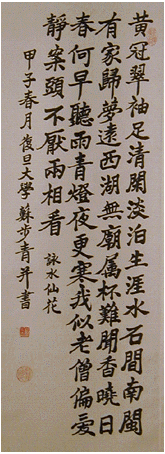 黃冠翠袖足清閑淡泊生涯水石間南閩
有家歸夢遠西湖無廟屬杯難聞香曉日
春何早聽雨青燈夜更寒我似老僧偏愛
靜案頭不厭兩相看 詠水仙花
甲子春月復旦大學蘇步青并書